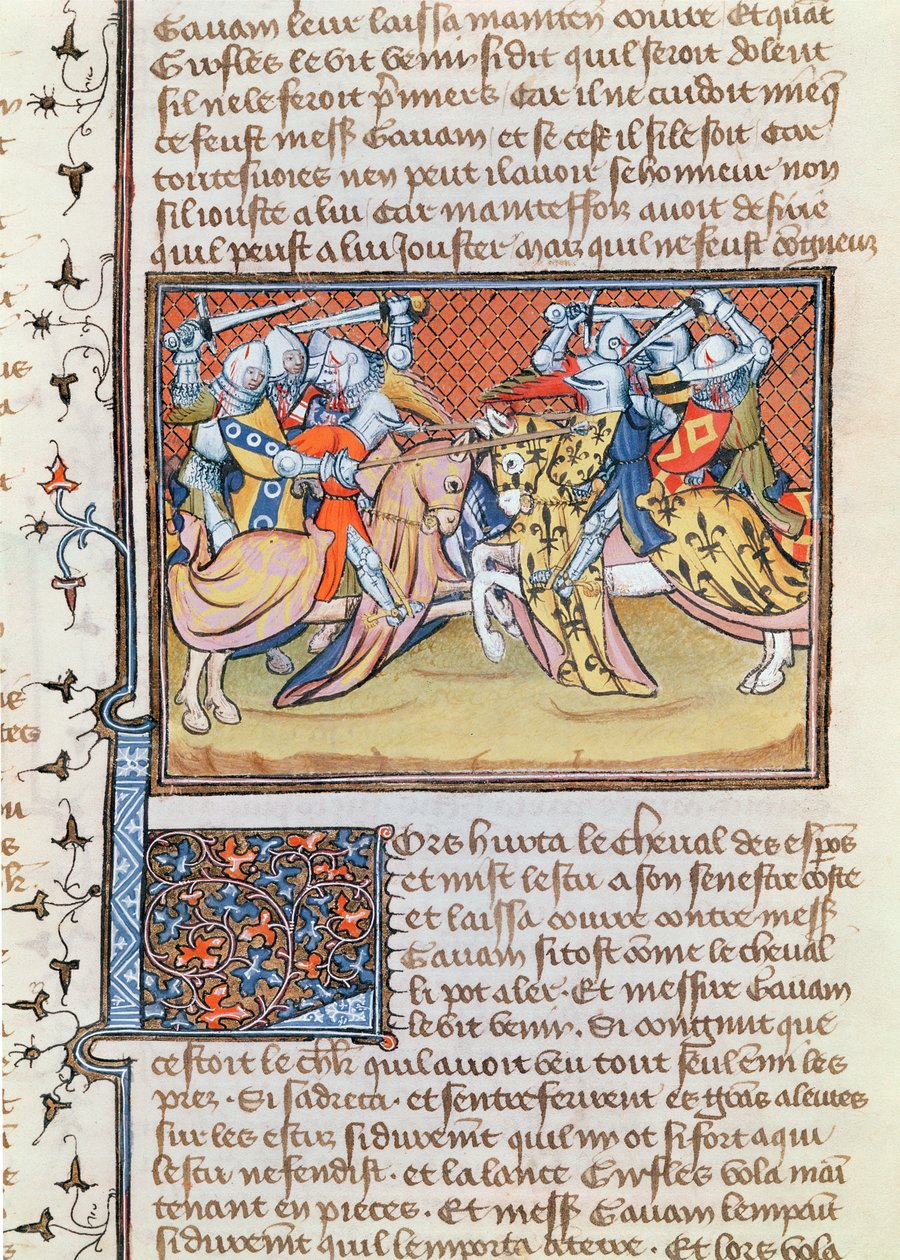 Gauuain leur laissa maintenãt courre Et quãt
Girfles le vit venir si dit quil seroit dolent
sil ne le feroit p̃miers Car il ne cuidoit mie q̃
ce feust mess̃ Gauuain et se cest il si le soit Car
toutesuoies nen peut il auoir se honneur non
sil iouste a lui Car maintessfois auoit desire
quil peust a lui Jouster mais quil ne feust cõgneuz
Lors hurta le cheual des esperõs
et mist lescu a son senestre coste
et laissa courre contre mess̃
Gauuain si tost cõme le cheual
li pot aler. Et messire Gauuain
le vit venir. Si congnut que
cestoit le chlr̃ quil auoit veu tout seul enmi les
prez. Si sadreca. et sentrefierent es grãs aleures
sur les escuz si duremẽt quil ny ot si fort a qui
lescu ne fendist. et la lance Girfles vola main
tenant en pieces. Et mess̃ Gauuain lempaint
si duremẽt quil lemporta a terre. Et lors vola